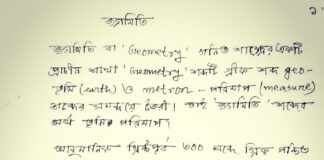 ১
জ্যামিতি
জ্যামিতি বা 'Geometry' গনিত শাস্ত্রের একটি
প্রাচীন শাখা 'Geometry' শব্দটি গ্রীক শব্দ geo-
ভূমি (earth) ও metron - পরিমাপ (measure)
শব্দের সমন্বয়ে তৈরী। তাই 'জ্যামিতি' শব্দের
অর্থ ভূমির পরিমাপ।
আনুমানিক খ্রিষ্টপূর্ব ৩০০ অব্দে গ্রিক পন্ডিত